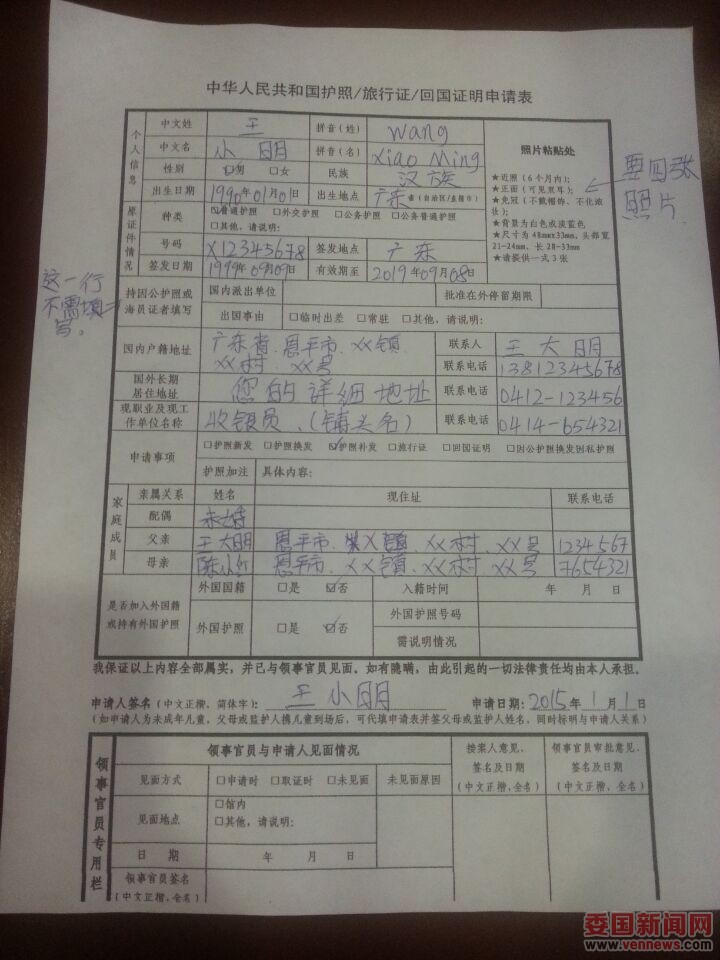 中华人民共和国护照/旅行证/回国证明申请表
个人信息
中文姓 王 拼音(姓) Wang
中文名 小明 拼音(名) Xiao Ming
性别 ☑男 □女 民族 汉族
出生日期 1990年01月01日 出生地点 广东省(自治区/直辖市)
照片粘贴处
★近照(6个月内);
★正面(可见双耳);
★免冠(不戴帽饰、不化浓
妆);
★背景为白色或淡蓝色
★尺寸为48mmx33mm,头部宽
21-24mm,长28-33mm
★请提供一式3张
要四张
照片
原证件情况
种类 ☑普通护照 □外交护照 □公务护照 □公务普通护照
□其他,请说明:
号码 X12345678 签发地点 广东
签发日期 1999年09月09日 有效期至 2019年09月08日
这一行
不需填
写。
持因公护照或
海员证者填写
国内派出单位 批准在外停留期限
出国事由 □临时出差 □常驻 □其他,请说明:
国内户籍地址 广东省、恩平市、XX镇
XX村、XX号
联系人 王大明
联系电话 13812345678
国外长期
居住地址
您的详细地址
联系电话 0412-123456
现职业及现工
作单位名称
收银员、(铺头名)
联系电话 0414-654321
申请事项 □护照新发 □护照换发 ☑护照补发 □旅行证 □回国证明 □因公护照换发因私护照
护照加注 具体内容:
家庭成员
亲属关系 姓名 现住址 联系电话
配偶 未婚
父亲 王大明 恩平市、XX镇、XX村、XX号 1234567
母亲 陈小红 恩平市、XX镇、XX村、XX号 7654321
是否加入外国籍
或持有外国护照
外国国籍 □是 ☑否 入籍时间 年 月 日
外国护照 □是 ☑否 外国护照号码
需说明情况
我保证以上内容全部属实,并已与领事官员见面。如有隐瞒,由此引起的一切法律责任均由本人承担。
申请人签名(中文正楷,简体字): 王小明 申请日期:2015年1月1日
(如申请人为未成年儿童,父母或监护人携儿童到场后,可代填申请表并签父母或监护人姓名,同时标明与申请人关系)
领事官员专用栏
领事官员与申请人见面情况
接案人意见、
签名及日期
(中文正楷,全名)
领事官员审批意见、
签名及日期
(中文正楷,全名)
见面方式 □申请时 □取证时 □未见面 未见面原因
见面地点 □馆内
□其他,请说明:
日 期 年 月 日
领事官员签名
(中文正楷,全名)
委国新闻网
www.vennews.com